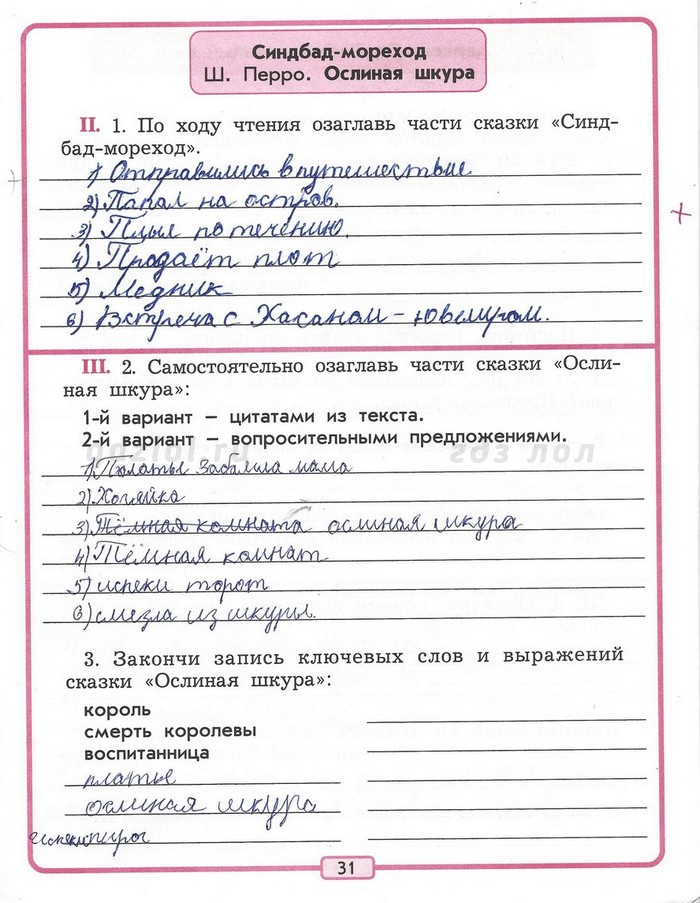 Синдбад-мореход
Ш. Перро. Ослиная шкура
II. 1. По ходу чтения озаглавь части сказки «Синд-
бад-мореход».
1) Отправились в путешествие
2) Папал на остров.
3) Плыл по течению.
4) Продаёт плот
5) Медник
6) Встреча с Хасаном - ювелиром.
III. 2. Самостоятельно озаглавь части сказки «Осли-
ная шкура»:
1-й вариант – цитатами из текста.
2-й вариант – вопросительными предложениями.
гдз лол
1) Платье мама
2) Хозяйка
3) Тёмная комната ослиная шкура
4) Тёмная комнат
5) испеки торот
6) из шкуры.
3. Закончи запись ключевых слов и выражений
сказки «Ослиная шкура»:
король
смерть королевы
воспитанница
платье
ослиная шкура
пирог
31